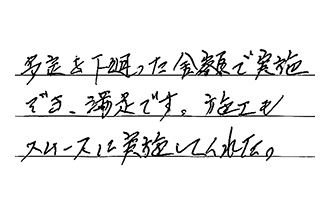 予定を下回った金額で実施
でき、満足です。施工も
スムーズに実施してくれた。